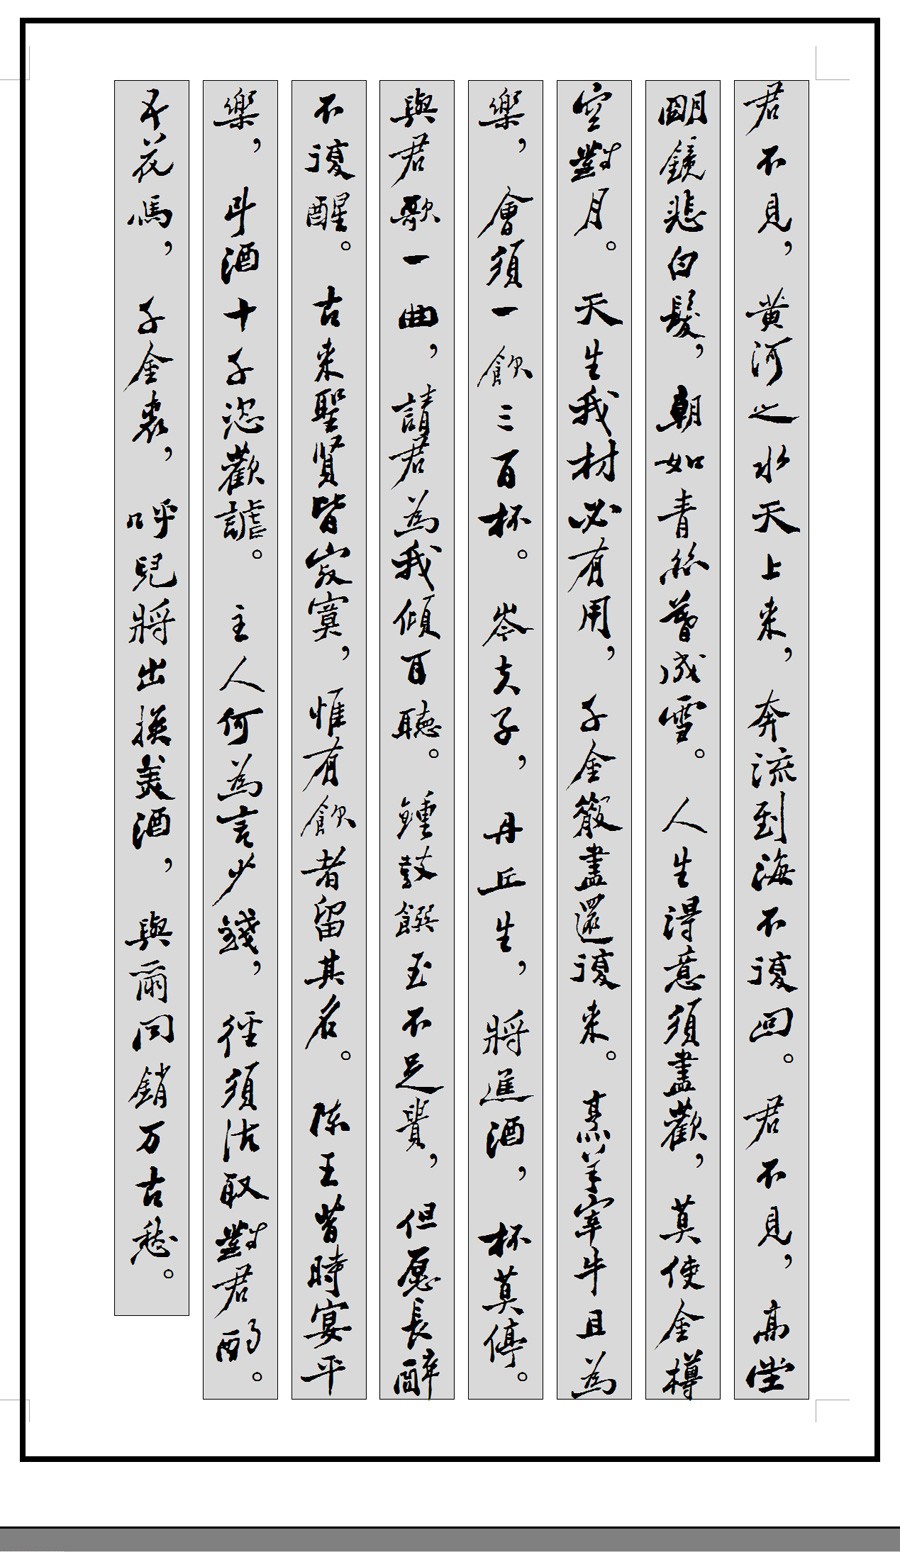 君不見，黃河之水天上来，奔流到海不復回。君不見，高堂
明鏡悲白髮，朝如青絲暮成雪。人生得意須盡歡，莫使金樽
空對月。天生我材必有用，千金散盡還復来。烹羊宰牛且為
樂，會須一飲三百杯。岑夫子，丹丘生，將進酒，杯莫停。
與君歌一曲，請君為我傾耳聽。鍾鼓饌玉不足貴，但愿長醉
不復醒。古来聖賢皆寂寞，惟有飲者留其名。陳王昔時宴平
樂，斗酒十千恣歡謔。主人何為言少錢，徑須沽取對君酌。
五花馬，千金裘，呼兒將出換美酒，與爾同銷万古愁。